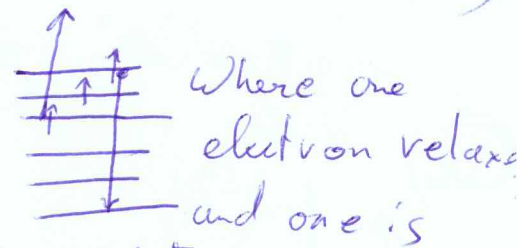 Where one
electron relaxes
and one is